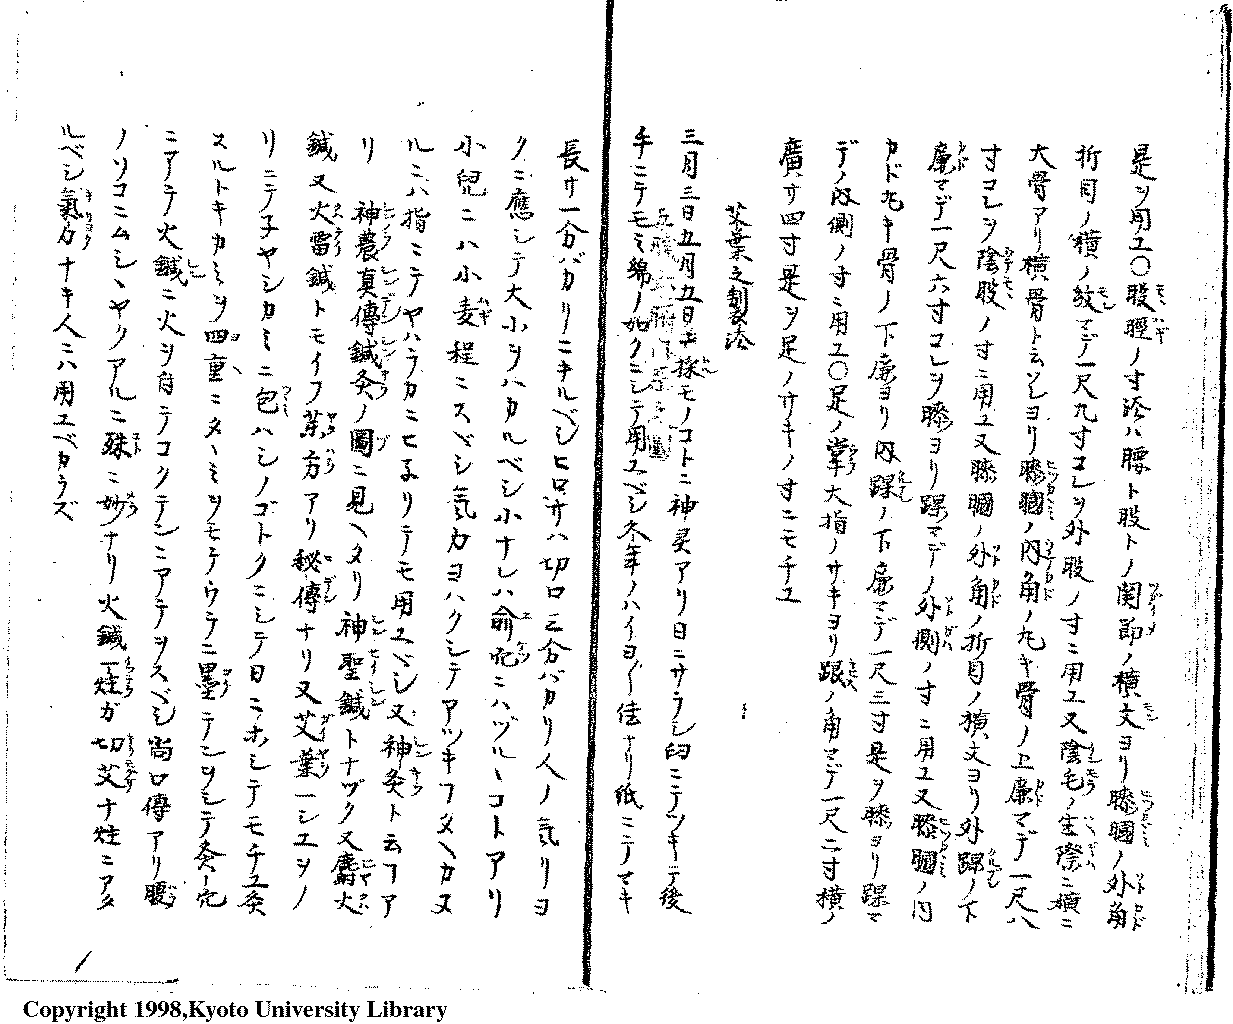 是ヲ用ユ〇股脛ノ寸法ハ腰ト股トノ関節ノ横文ヨリ膝膕ノ外角
折目ノ横ノ紋マデ一尺九寸コレヲ外股ノ寸ニ用ユ又陰毛ノ生際ニ横ニ
大骨アリ横骨ト云ソレヨリ膝膕ノ内角ノ丸キ骨ノ上廉マデ一尺八
寸コレヲ陰股ノ寸ニ用ユ又膝膕ノ外角ノ折目ノ横文ヨリ外踝ノ下
廉マデ一尺六寸コレヲ膝ヨリ踝マデノ外側ノ寸ニ用ユ又膝膕ノ内
カド丸キ骨ノ下廉ヨリ内踝ノ下廉マデ一尺三寸是ヲ膝ヨリ踝マ
デノ内側ノ寸ニ用ユ〇足ノ掌大指ノサキヨリ跟ノ角マデ一尺二寸横ノ
廣サ四寸是ヲ足ノサキノ寸ニモチユ
艾葉之製法
三月三日五月五日ニ採モノコトニ神灵アリ日ニサラシ臼ニテツキテ後
手ニテモミ綿ノ如クニシテ用ユベシ冬年ノハイヨイヨ佳ナリ紙ニテマキ
長サ一分バカリニキルベシヒロサハ切口三分バカリ人ノ氣リヨ
クニ應シテ大小ヲハカルベシ小ナレハ俞穴ニハヅルヽコトアリ
小兒ニハ小麦程ニスベシ氣カヨハクシテアツキフタヘカヌ
ルニハ指ニテヤハラカニヒ子リテモ用ユベシ又神灸ト云フア
リ 神農真傳鍼灸ノ圖ニ見ヘタリ神聖鍼トナヅク又麝火
鍼又火雷鍼トモイフ薬方アリ秘傳ナリ又艾葉一シユヲノ
リニテ子ヤシカミニ包ハシノゴトクニシテ日ニホシテモチユ灸
スルトキカミヲ四重ニタヽミツモテウラニ墨テンヲシテ灸穴
ニアテ火鍼ニ火ヲ付テコクテンニアテヲスベシ尚口傳アリ腰
ノソコニムシヽヤクアルニ殊ニ妙ナリ火鍼一炷ガ切艾ナ炷ニアタ
ルベシ氣力ナキ人ニハ用ユベカラズ
Copyright 1998,Kyoto University Library